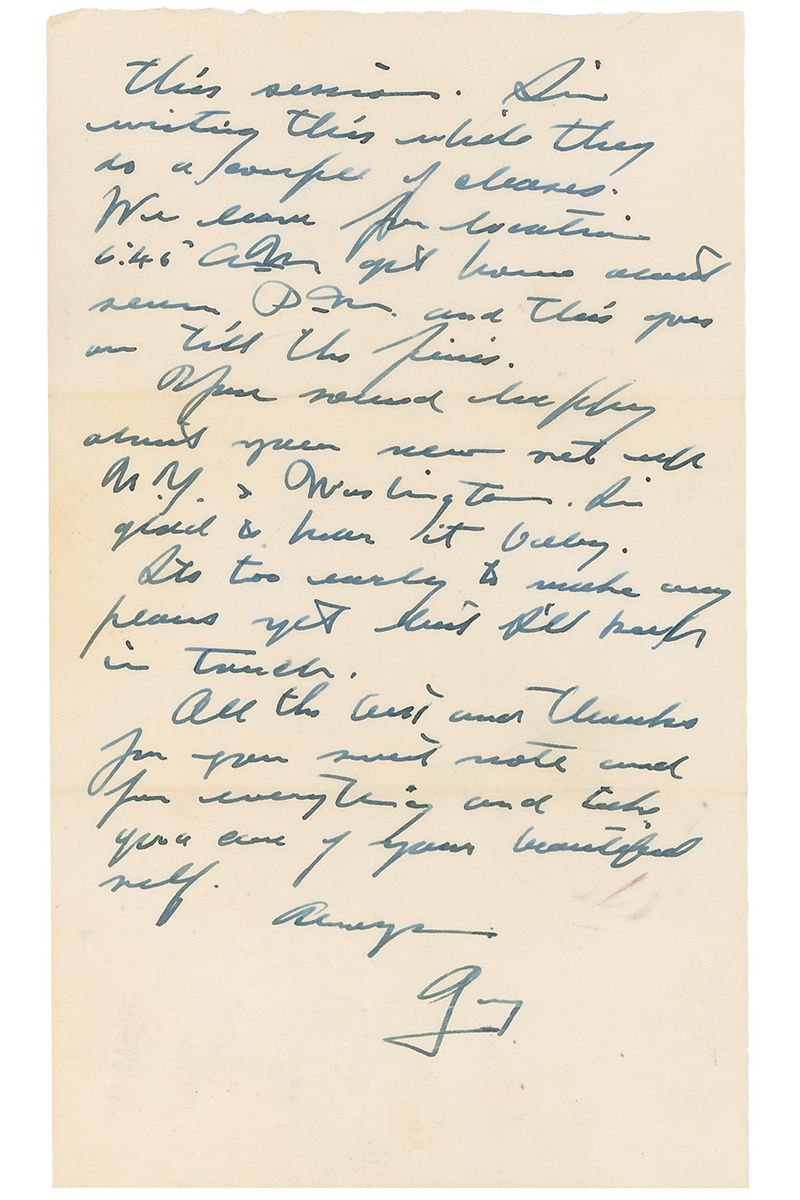 this session. I'm
writing this while they
do a couple of closeups.
We leave for location
6:45 A.M. get home about
seven P.M. and this goes
on till the finis.
You sound happy
about your new set up
N.Y. & Washington. I'm
glad to hear it baby.
Its too early to make any
plans yet but I'll keep
in touch.
All the best and thanks
for your sweet note and
for everything and take
good care of your beautiful
self.
Always
Gary